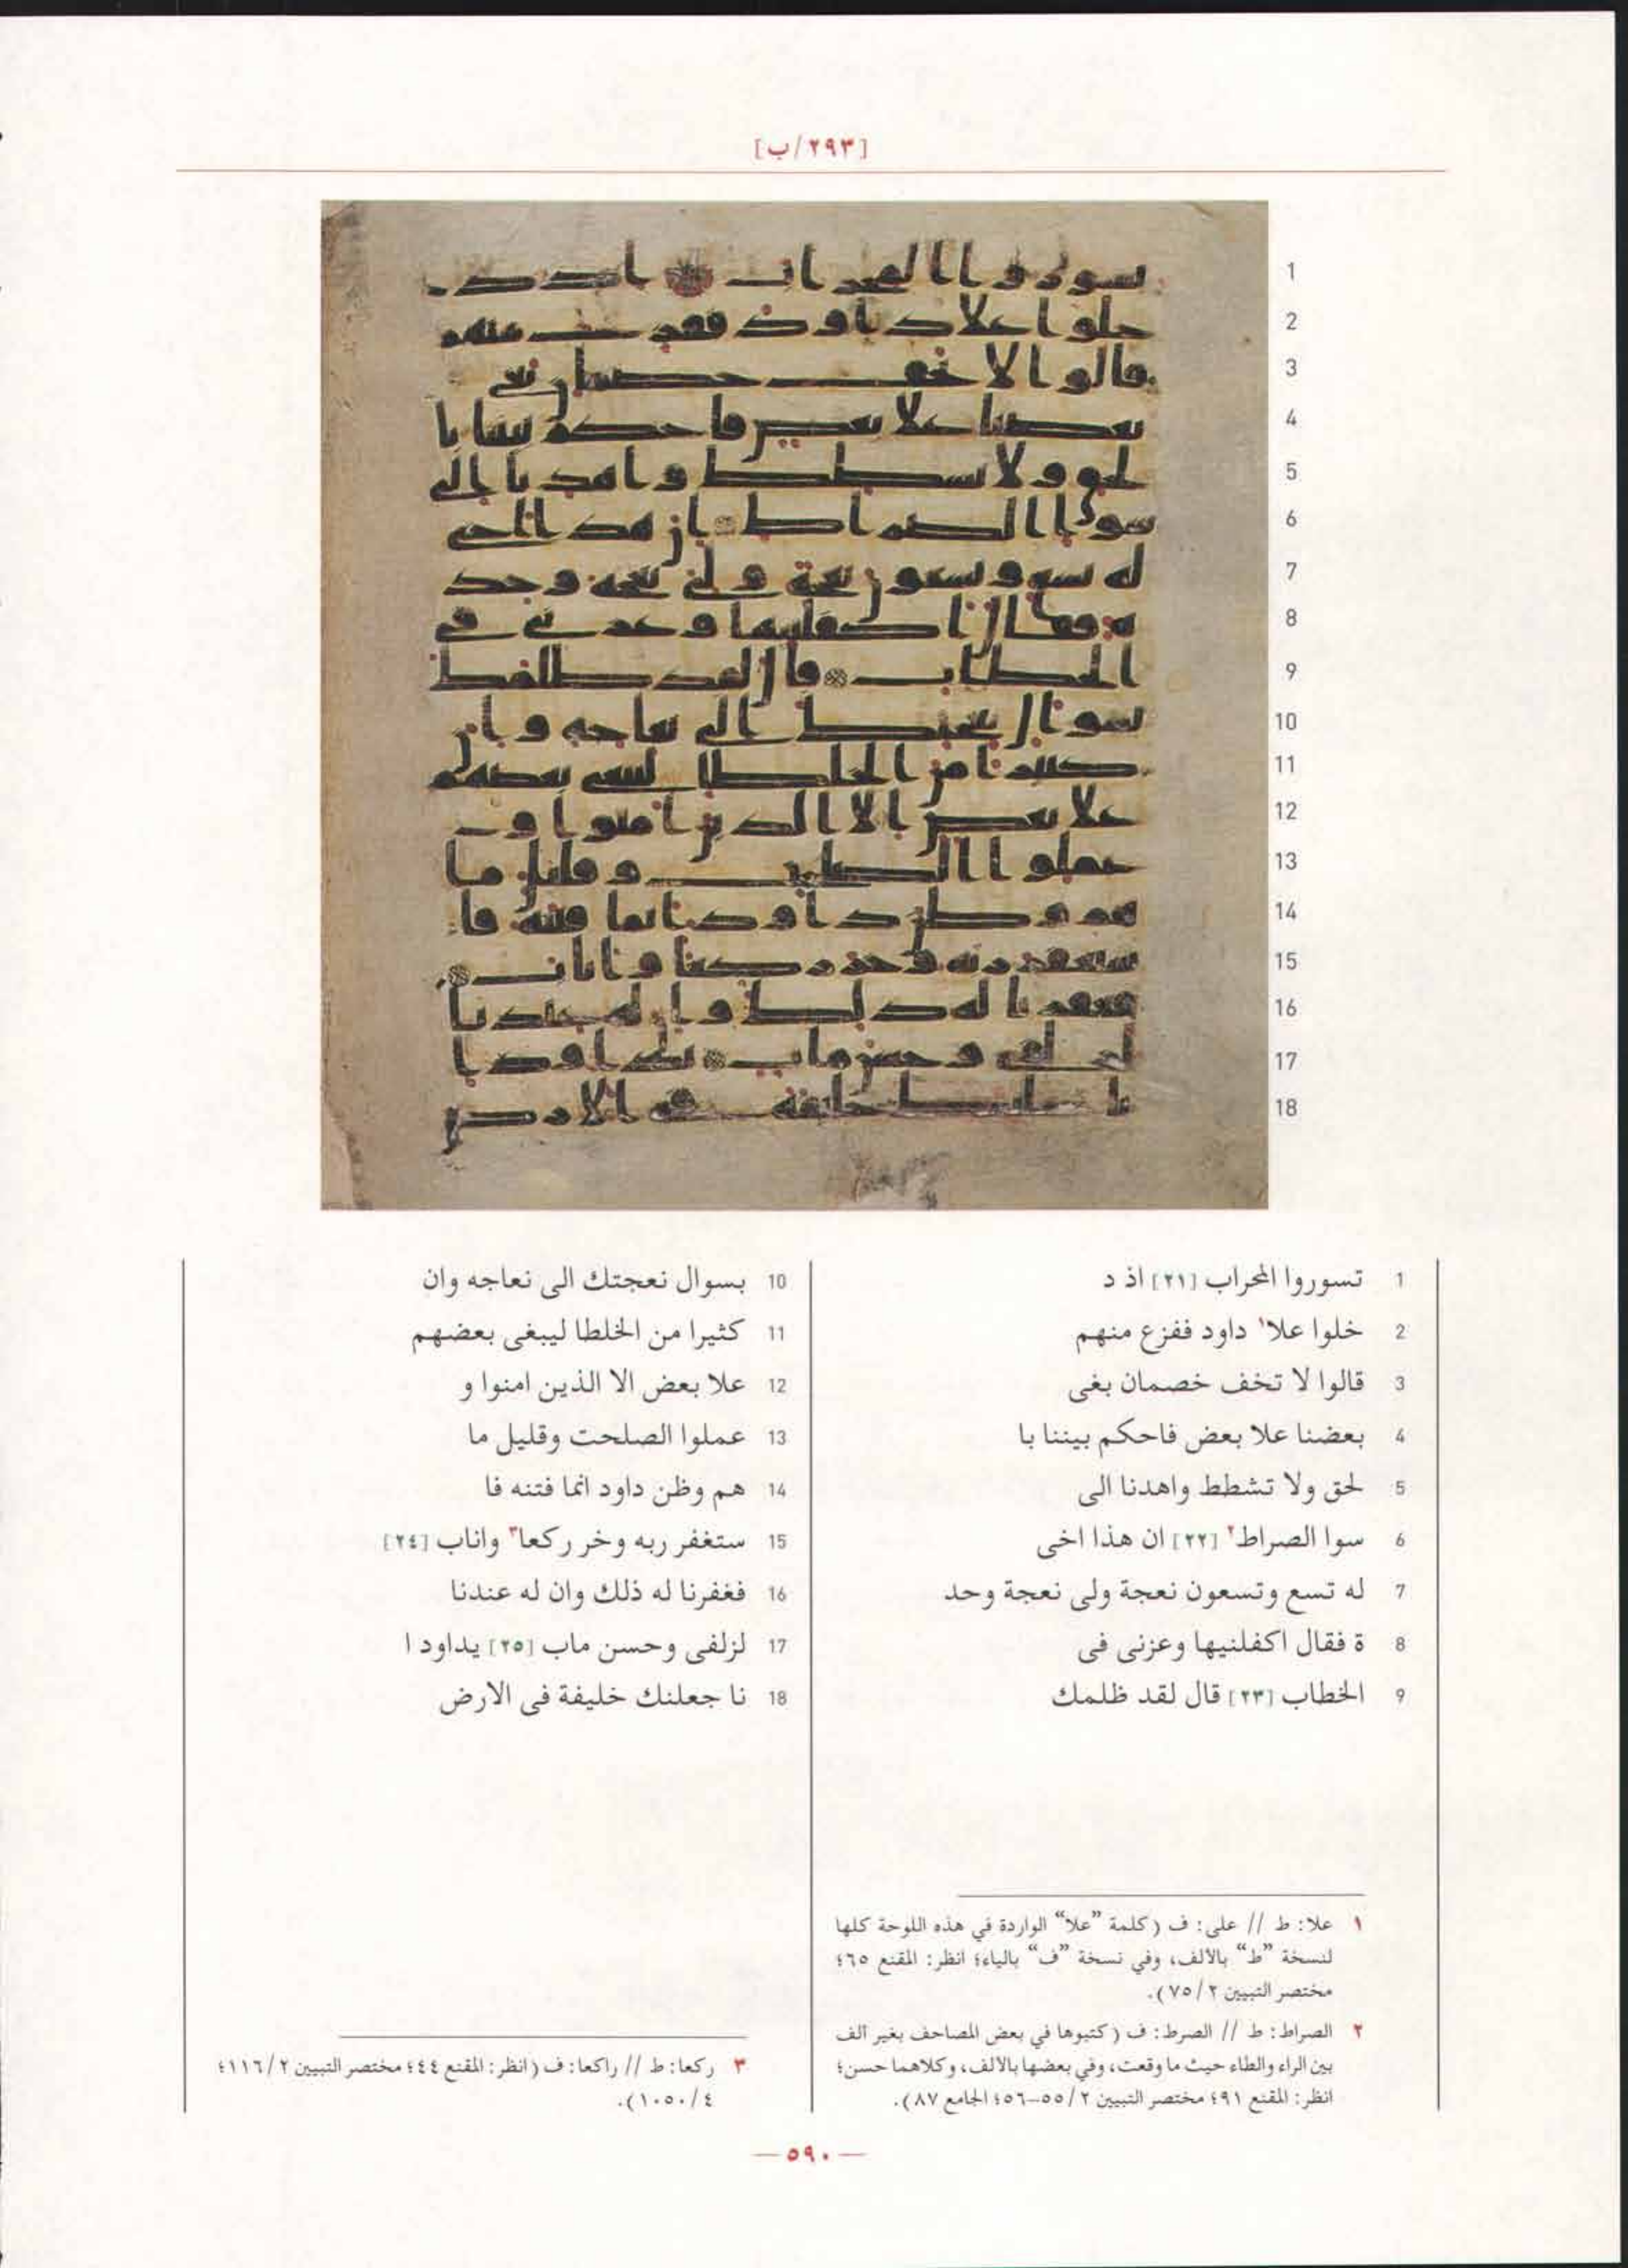 [٢٩٣/ب]
1 تسوروا المحراب [٢١] اذ د
2 خلوا علا١ داود ففزع منهم
3 قالوا لا تخف خصمان بغى
4 بعضنا علا بعض فاحكم بيننا با
5 لحق ولا تشطط واهدنا الى
6 سوا الصراط٢ [٢٢] ان هذا اخى
7 له تسع وتسعون نعجة ولى نعجة وحد
8 ة فقال اكفلنيها وعزنى فى
9 الخطاب [٢٣] قال لقد ظلمك
10 بسوال نعجتك الى نعاجه وان
11 كثيرا من الخلطا ليبغى بعضهم
12 علا بعض الا الذين امنوا و
13 عملوا الصلحت وقليل ما
14 هم وظن داود انما فتنه فا
15 ستغفر ربه وخر ركعا٣ واناب [٢٤]
16 فغفرنا له ذلك وان له عندنا
17 لزلفى وحسن ماب [٢٥] يداود ا
18 نا جعلنك خليفة فى الارض
١ علا: ط // على: ف (كلمة "علا" الواردة في هذه اللوحة كلها
لنسخة "ط" بالألف، وفي نسخة "ف" بالياء؛ انظر: المقنع ٦٥؛
مختصر التبيين ٢/ ٧٥).
٢ الصراط: ط // الصرط: ف (كتبوها في بعض المصاحف بغير ألف
بين الراء والطاء حيث ما وقعت، وفي بعضها بالألف، وكلاهما حسن؛
انظر: المقنع ٩١؛ مختصر التبيين ٢/ ٥٥-٥٦؛ الجامع ٨٧).
٣ ركعا: ط // راكعا: ف (انظر: المقنع ٤٤؛ مختصر التبيين ٢/ ١١٦؛
٤/ ١٠٥٠).
— ٥٩٠ —